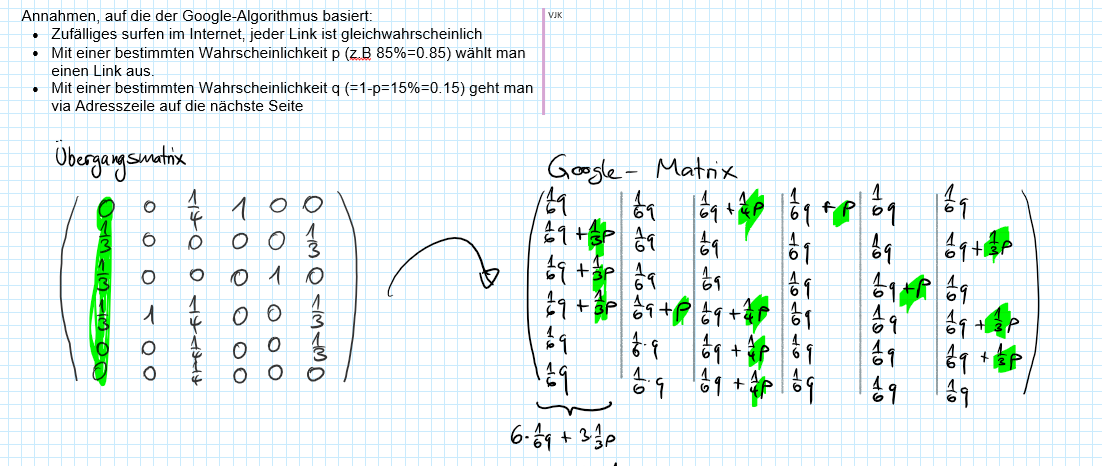 Annahmen, auf die der Google-Algorithmus basiert:
• Zufälliges surfen im Internet, jeder Link ist gleichwahrscheinlich
• Mit einer bestimmten Wahrscheinlichkeit p (z.B 85%=0.85) wählt man
einen Link aus.
• Mit einer bestimmten Wahrscheinlichkeit q (=1-p=15%=0.15) geht man
via Adresszeile auf die nächste Seite
VJK
Übergangsmatrix
0 0 1/4 1 0 0
1/3 0 0 0 0 1/3
1/3 0 0 0 1 0
1/3 1 1/4 0 0 1/3
0 0 1/4 0 0 1/3
0 0 1/4 0 0 0
Google-Matrix
1/6q | 1/6q | 1/6q + 1/4p | 1/6q + p | 1/6q | 1/6q
1/6q + 1/3p | 1/6q | 1/6q | 1/6q | 1/6q | 1/6q + 1/3p
1/6q + 1/3p | 1/6q | 1/6q | 1/6q | 1/6q + p | 1/6q
1/6q + 1/3p | 1/6q + p | 1/6q + 1/4p | 1/6q | 1/6q | 1/6q + 1/3p
1/6q | 1/6·q | 1/6q + 1/4p | 1/6q | 1/6q | 1/6q + 1/3p
1/6q | 1/6·q | 1/6q + 1/4p | 1/6q | 1/6q | 1/6q
6·1/6q + 3·1/3p